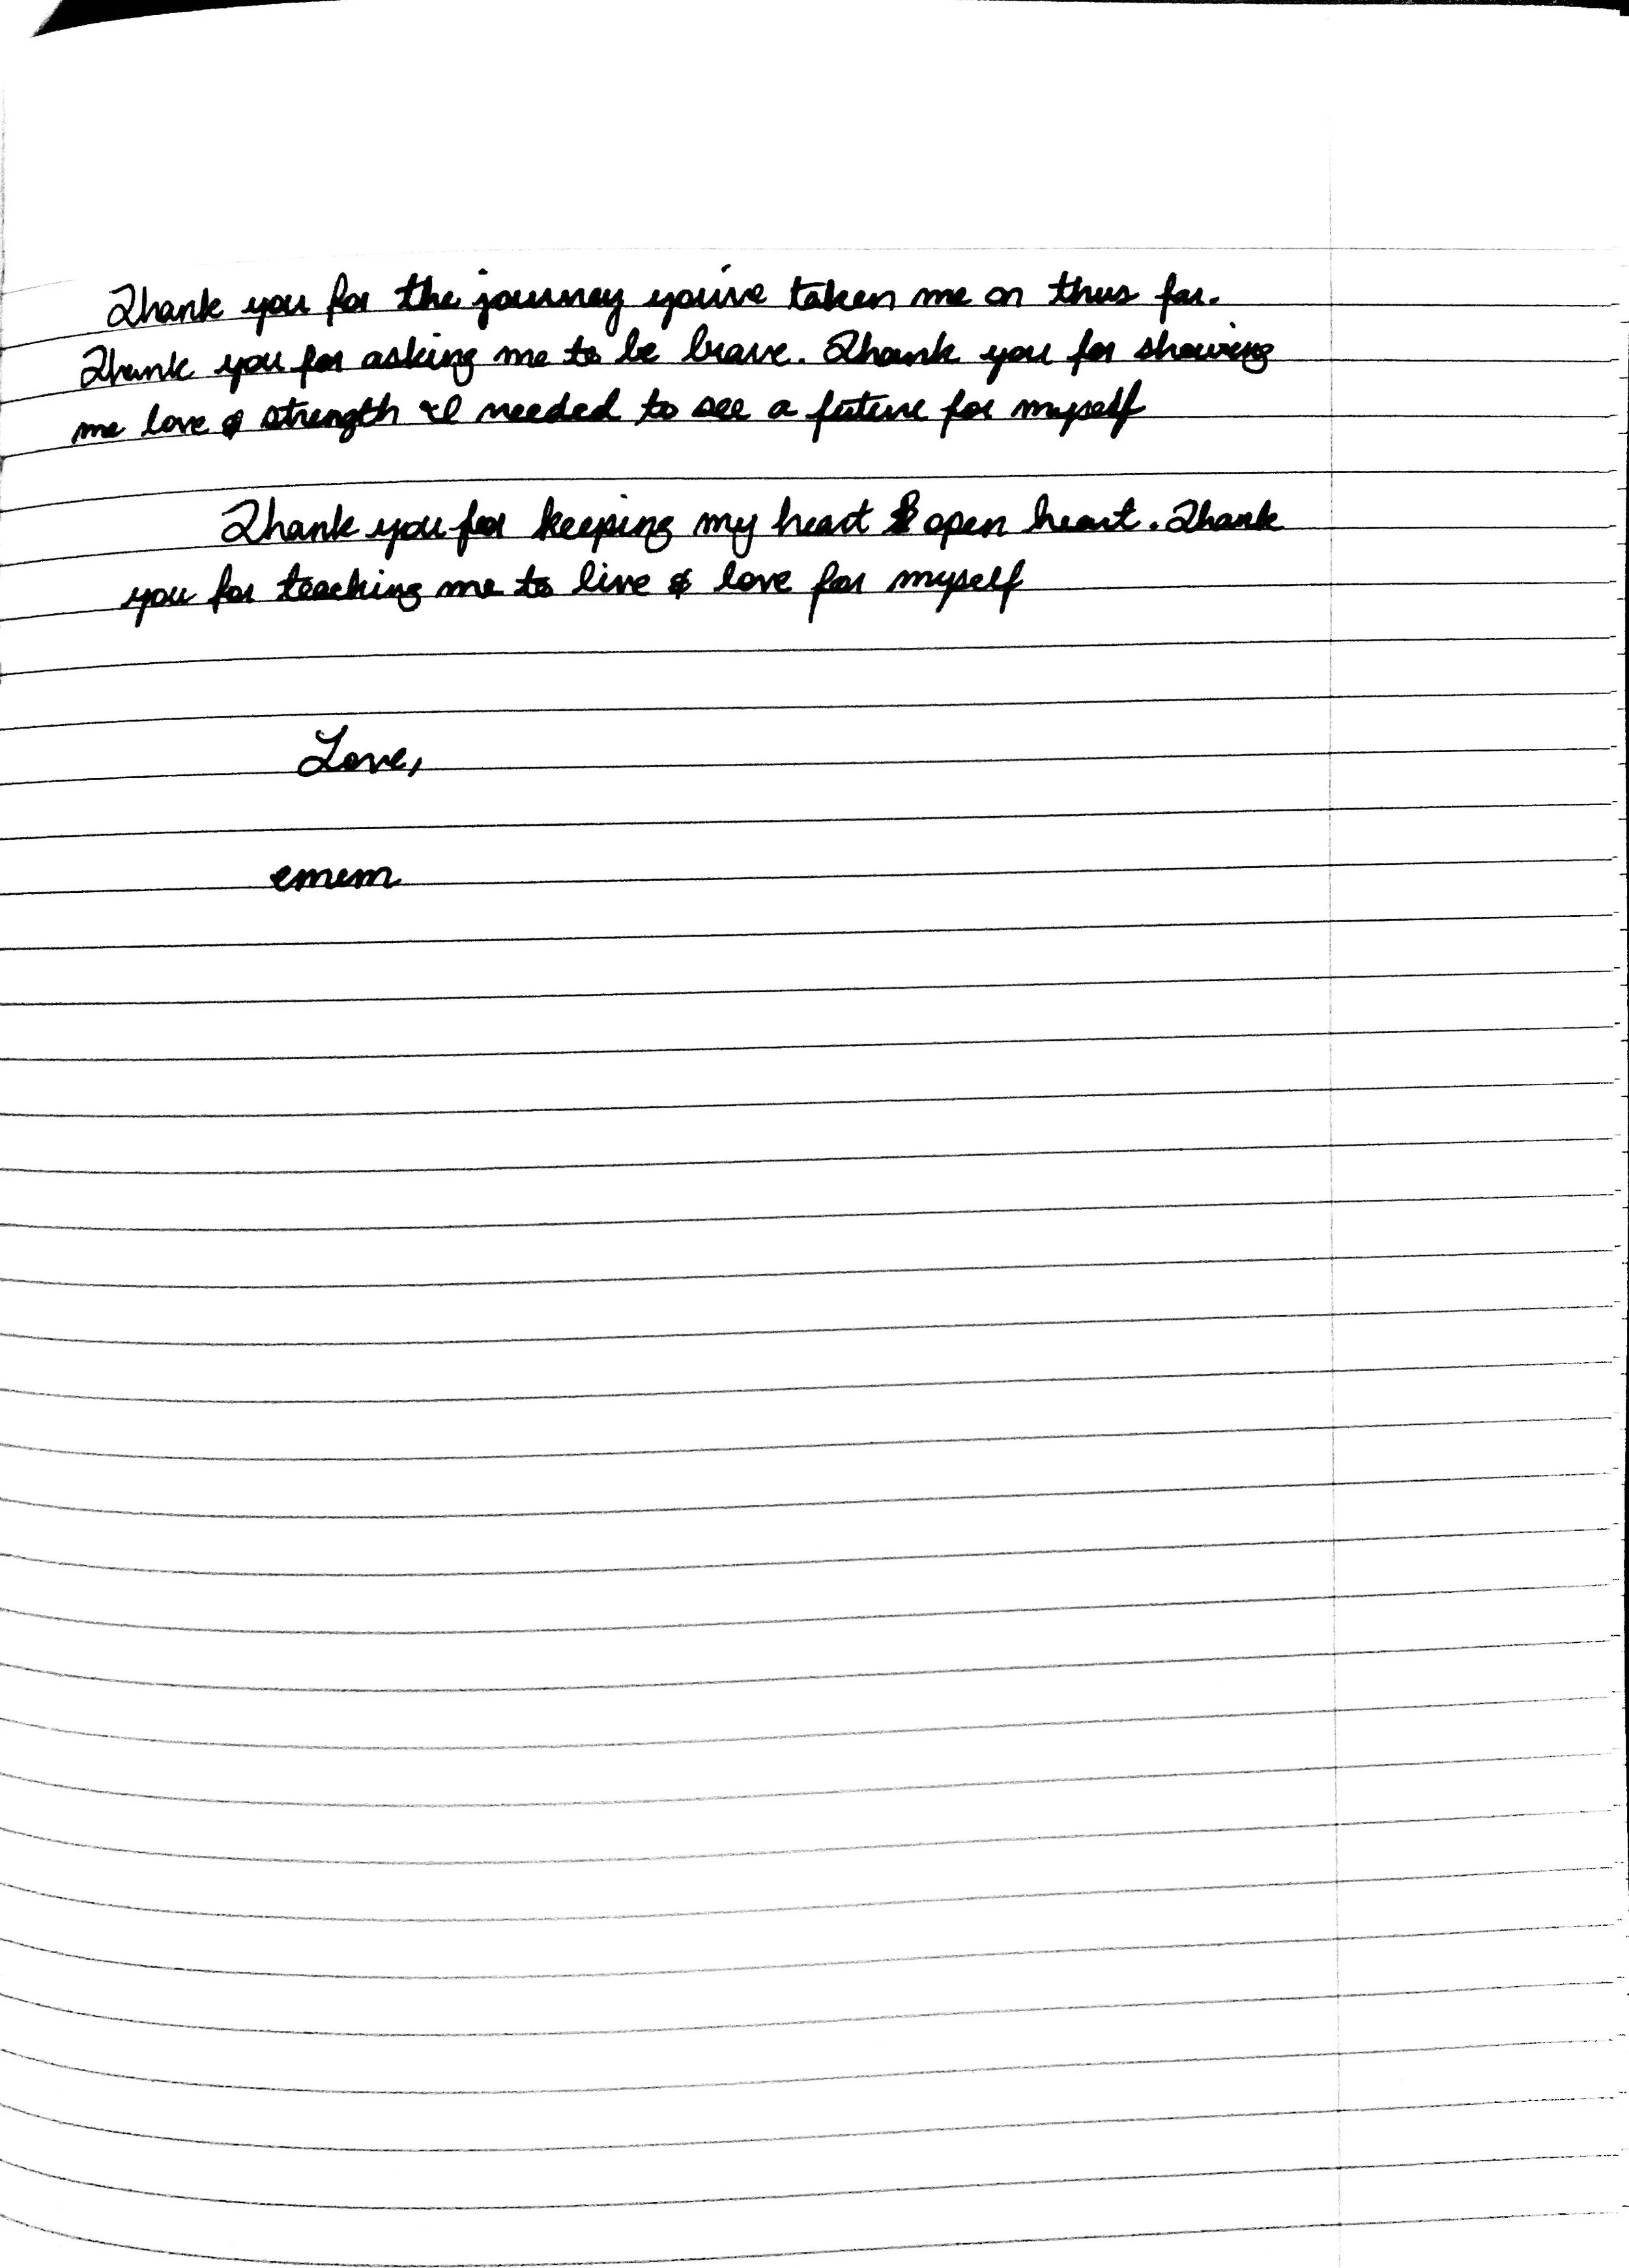 Thank you for the journey you've taken me on thus far.
Thank you for asking me to be brave. Thank you for showing
me love & strength I needed to see a future for myself
Thank you for keeping my heart & open heart. Thank
you for teaching me to live & love for myself
Love,
emem